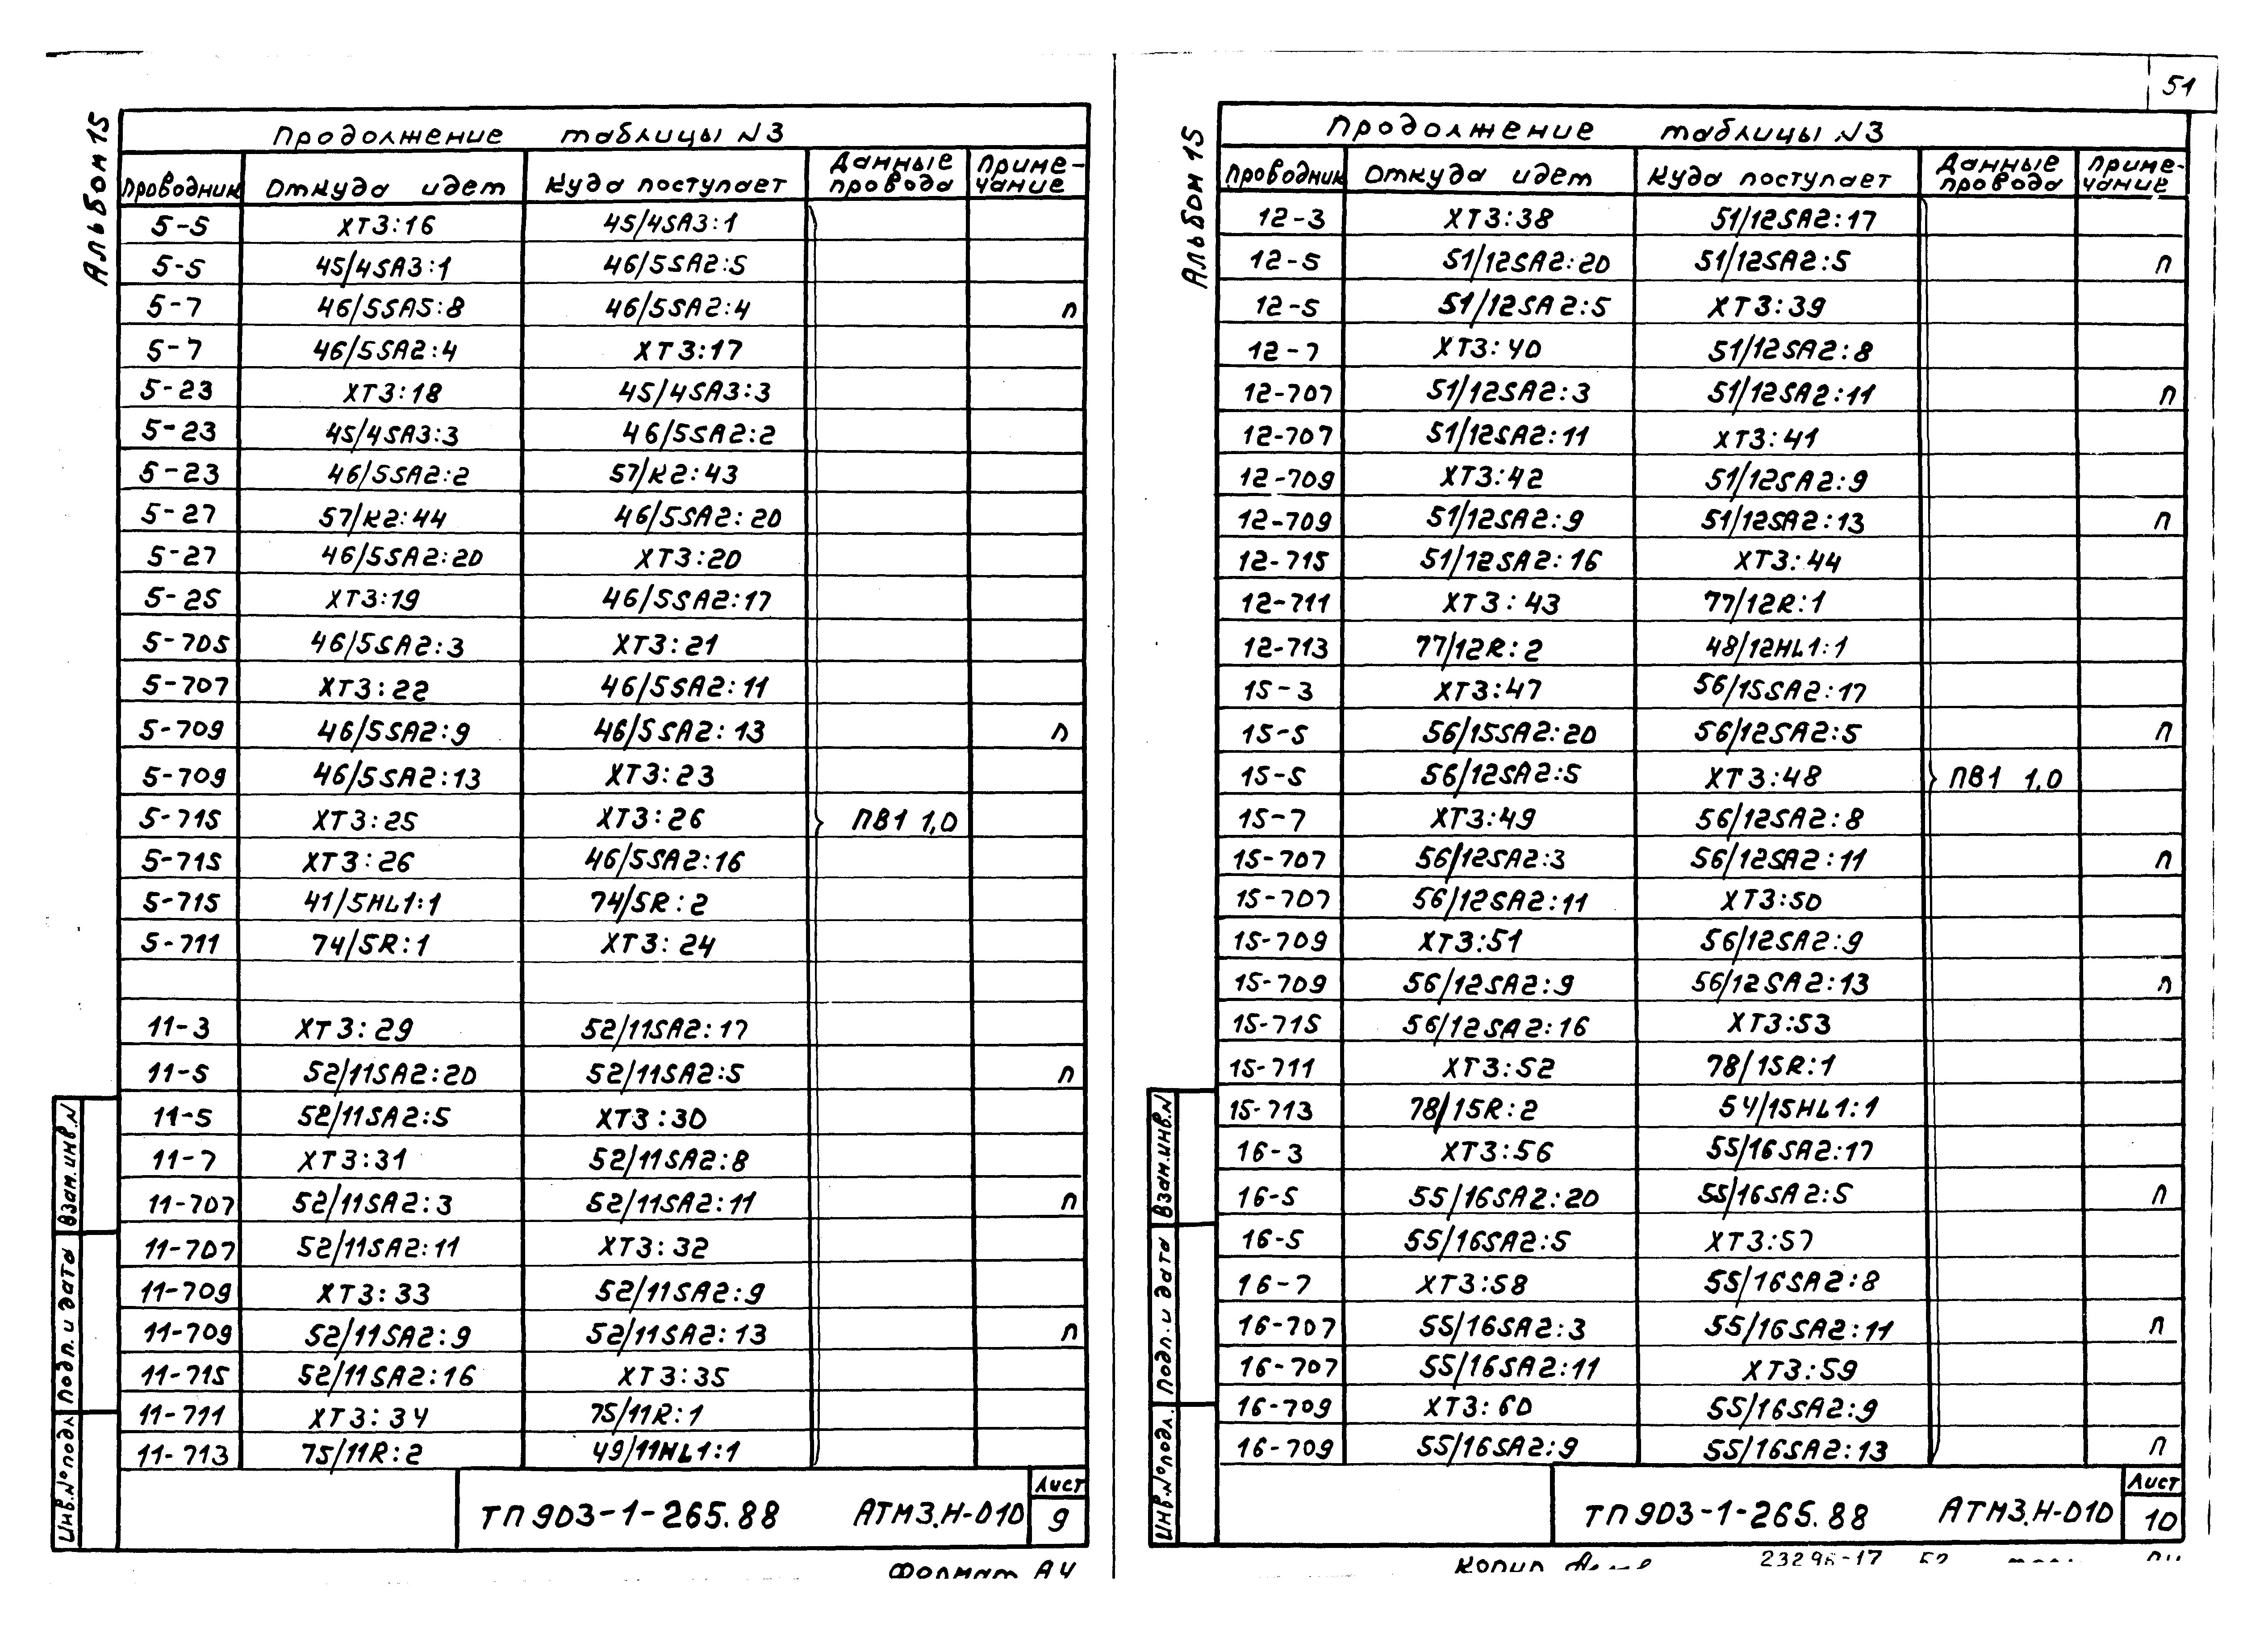 51
Альбом 15
Продолжение таблицы N3
Проводник Откуда идет Куда поступает Данные провода Приме-чание
5-5 XT3:16 45/4SA3:1
5-5 45/4SA3:1 46/5SA2:5
5-7 46/5SA5:8 46/5SA2:4 п
5-7 46/5SA2:4 XT3:17
5-23 XT3:18 45/4SA3:3
5-23 45/4SA3:3 46/5SA2:2
5-23 46/5SA2:2 57/K2:43
5-27 57/K2:44 46/5SA2:20
5-27 46/5SA2:20 XT3:20
5-25 XT3:19 46/5SA2:17
5-705 46/5SA2:3 XT3:21
5-707 XT3:22 46/5SA2:11
5-709 46/5SA2:9 46/5SA2:13 п
5-709 46/5SA2:13 XT3:23
5-715 XT3:25 XT3:26 ПВ1 1,0
5-715 XT3:26 46/5SA2:16
5-715 41/5HL1:1 74/5R:2
5-711 74/5R:1 XT3:24
11-3 XT3:29 52/11SA2:17
11-5 52/11SA2:20 52/11SA2:5 п
11-5 52/11SA2:5 XT3:30
11-7 XT3:31 52/11SA2:8
11-707 52/11SA2:3 52/11SA2:11 п
11-707 52/11SA2:11 XT3:32
11-709 XT3:33 52/11SA2:9
11-709 52/11SA2:9 52/11SA2:13 п
11-715 52/11SA2:16 XT3:35
11-711 XT3:34 75/11R:1
11-713 75/11R:2 49/11HL1:1
Взам.инв.N
Подп. и дата
Инв.№подл.
ТП 903-1-265.88 АТМ3.Н-010
Лист
9
Формат А4
Альбом 15
Продолжение таблицы N3
Проводник Откуда идет Куда поступает Данные провода Приме-чание
12-3 XT3:38 51/12SA2:17
12-5 51/12SA2:20 51/12SA2:5 п
12-5 51/12SA2:5 XT3:39
12-7 XT3:40 51/12SA2:8
12-707 51/12SA2:3 51/12SA2:11 п
12-707 51/12SA2:11 XT3:41
12-709 XT3:42 51/12SA2:9
12-709 51/12SA2:9 51/12SA2:13 п
12-715 51/12SA2:16 XT3:44
12-711 XT3:43 77/12R:1
12-713 77/12R:2 48/12HL1:1
15-3 XT3:47 56/15SA2:17
15-5 56/15SA2:20 56/12SA2:5 п
15-5 56/12SA2:5 XT3:48 ПВ1 1,0
15-7 XT3:49 56/12SA2:8
15-707 56/12SA2:3 56/12SA2:11 п
15-707 56/12SA2:11 XT3:50
15-709 XT3:51 56/12SA2:9
15-709 56/12SA2:9 56/12SA2:13 п
15-715 56/12SA2:16 XT3:53
15-711 XT3:52 78/15R:1
15-713 78/15R:2 54/15HL1:1
16-3 XT3:56 55/16SA2:17
16-5 55/16SA2:20 55/16SA2:5 п
16-5 55/16SA2:5 XT3:57
16-7 XT3:58 55/16SA2:8
16-707 55/16SA2:3 55/16SA2:11 п
16-707 55/16SA2:11 XT3:59
16-709 XT3:60 55/16SA2:9
16-709 55/16SA2:9 55/16SA2:13 п
Взам.инв.N
Подп. и дата
Инв.№подл.
ТП 903-1-265.88 АТМ3.Н-010
Лист
10
Копир 23296-17 52